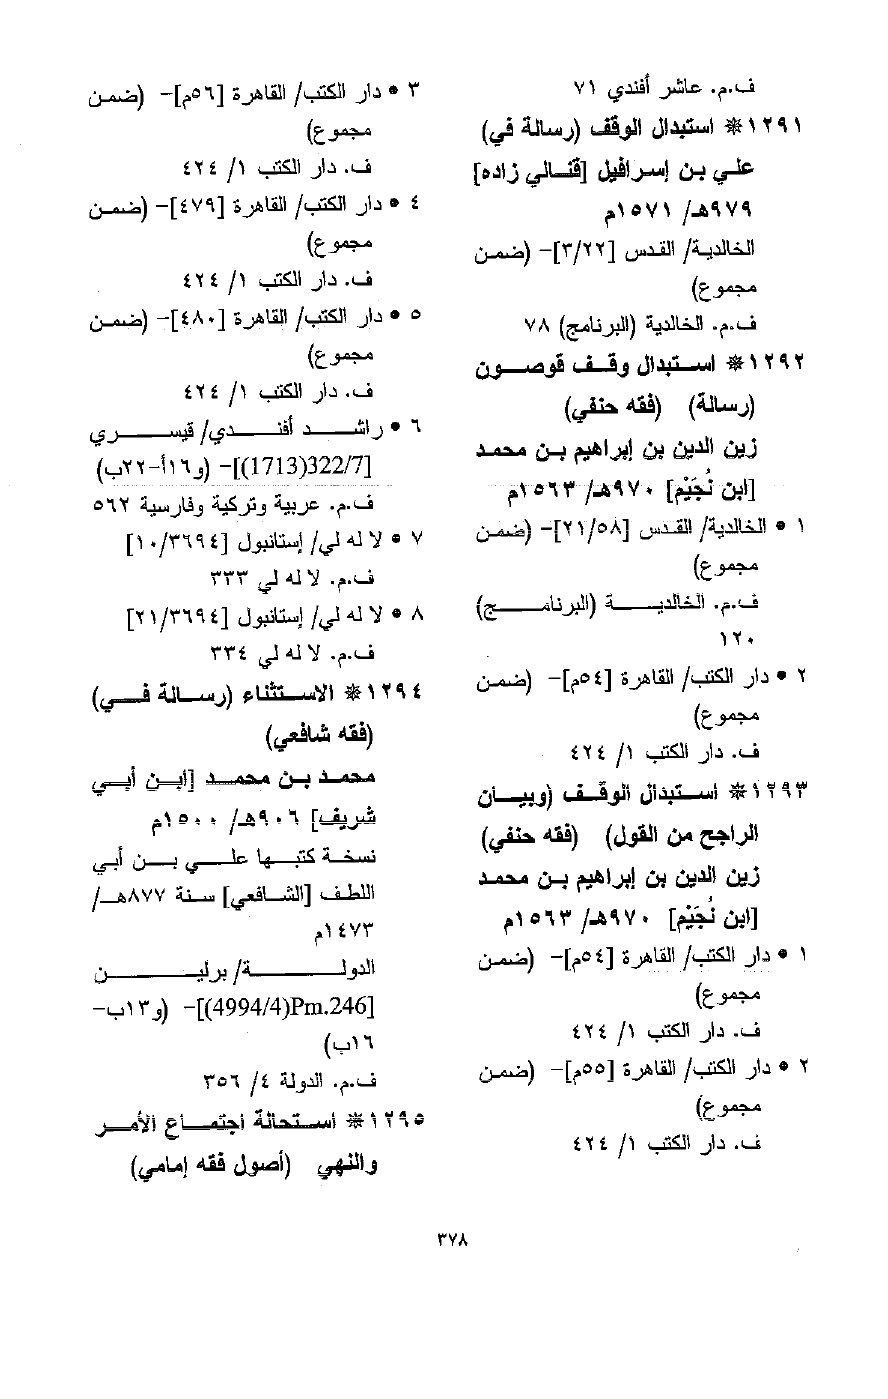 ف.م. عاشر أفندي ٧١
١٢٩١ ❋ استبدال الوقف (رسالة في)
علي بن إسرافيل [قنالي زاده]
٩٧٩هـ/ ١٥٧١م
الخالدية/ القدس [٣/٢٢]– (ضمن
مجموع)
ف.م. الخالدية (البرنامج) ٧٨
١٢٩٢ ❋ استبدال وقف قوصون
(رسالة) (فقه حنفي)
زين الدين بن إبراهيم بن محمد
[ابن نُجَيْم] ٩٧٠هـ/ ١٥٦٣م
١ • الخالدية/ القدس [٢١/٥٨]– (ضمن
مجموع)
ف.م. الخالدية (البرنامج)
١٢٠
٢ • دار الكتب/ القاهرة [٥٤م]– (ضمن
مجموع)
ف. دار الكتب ١/ ٤٢٤
١٢٩٣ ❋ استبدال الوقف (وبيان
الراجح من القول) (فقه حنفي)
زين الدين بن إبراهيم بن محمد
[ابن نُجَيْم] ٩٧٠هـ/ ١٥٦٣م
١ • دار الكتب/ القاهرة [٥٤م]– (ضمن
مجموع)
ف. دار الكتب ١/ ٤٢٤
٢ • دار الكتب/ القاهرة [٥٥م]– (ضمن
مجموع)
ف. دار الكتب ١/ ٤٢٤
٣ • دار الكتب/ القاهرة [٥٦م]– (ضمن
مجموع)
ف. دار الكتب ١/ ٤٢٤
٤ • دار الكتب/ القاهرة [٤٧٩]– (ضمن
مجموع)
ف. دار الكتب ١/ ٤٢٤
٥ • دار الكتب/ القاهرة [٤٨٠]– (ضمن
مجموع)
ف. دار الكتب ١/ ٤٢٤
٦ • راشد أفندي/ قيسري
[322/7(1713)]– (و١٦أ–٢٢ب)
ف.م. عربية وتركية وفارسية ٥٦٢
٧ • لا له لي/ إستانبول [١٠/٣٦٩٤]
ف.م. لا له لي ٣٣٣
٨ • لا له لي/ إستانبول [٢١/٣٦٩٤]
ف.م. لا له لي ٣٣٤
١٢٩٤ ❋ الاستثناء (رسالة في)
(فقه شافعي)
محمد بن محمد [ابن أبي
شريف] ٩٠٦هـ/ ١٥٠٠م
نسخة كتبها علي بن أبي
اللطف [الشافعي] سنة ٨٧٧هـ/
١٤٧٣م
الدولة/ برلين
[4994/4)Pm.246)]– (و١٣ب–
١٦ب)
ف.م. الدولة ٤/ ٣٥٦
١٢٩٥ ❋ استحالة اجتماع الأمر
والنهي (أصول فقه إمامي)
٣٧٨